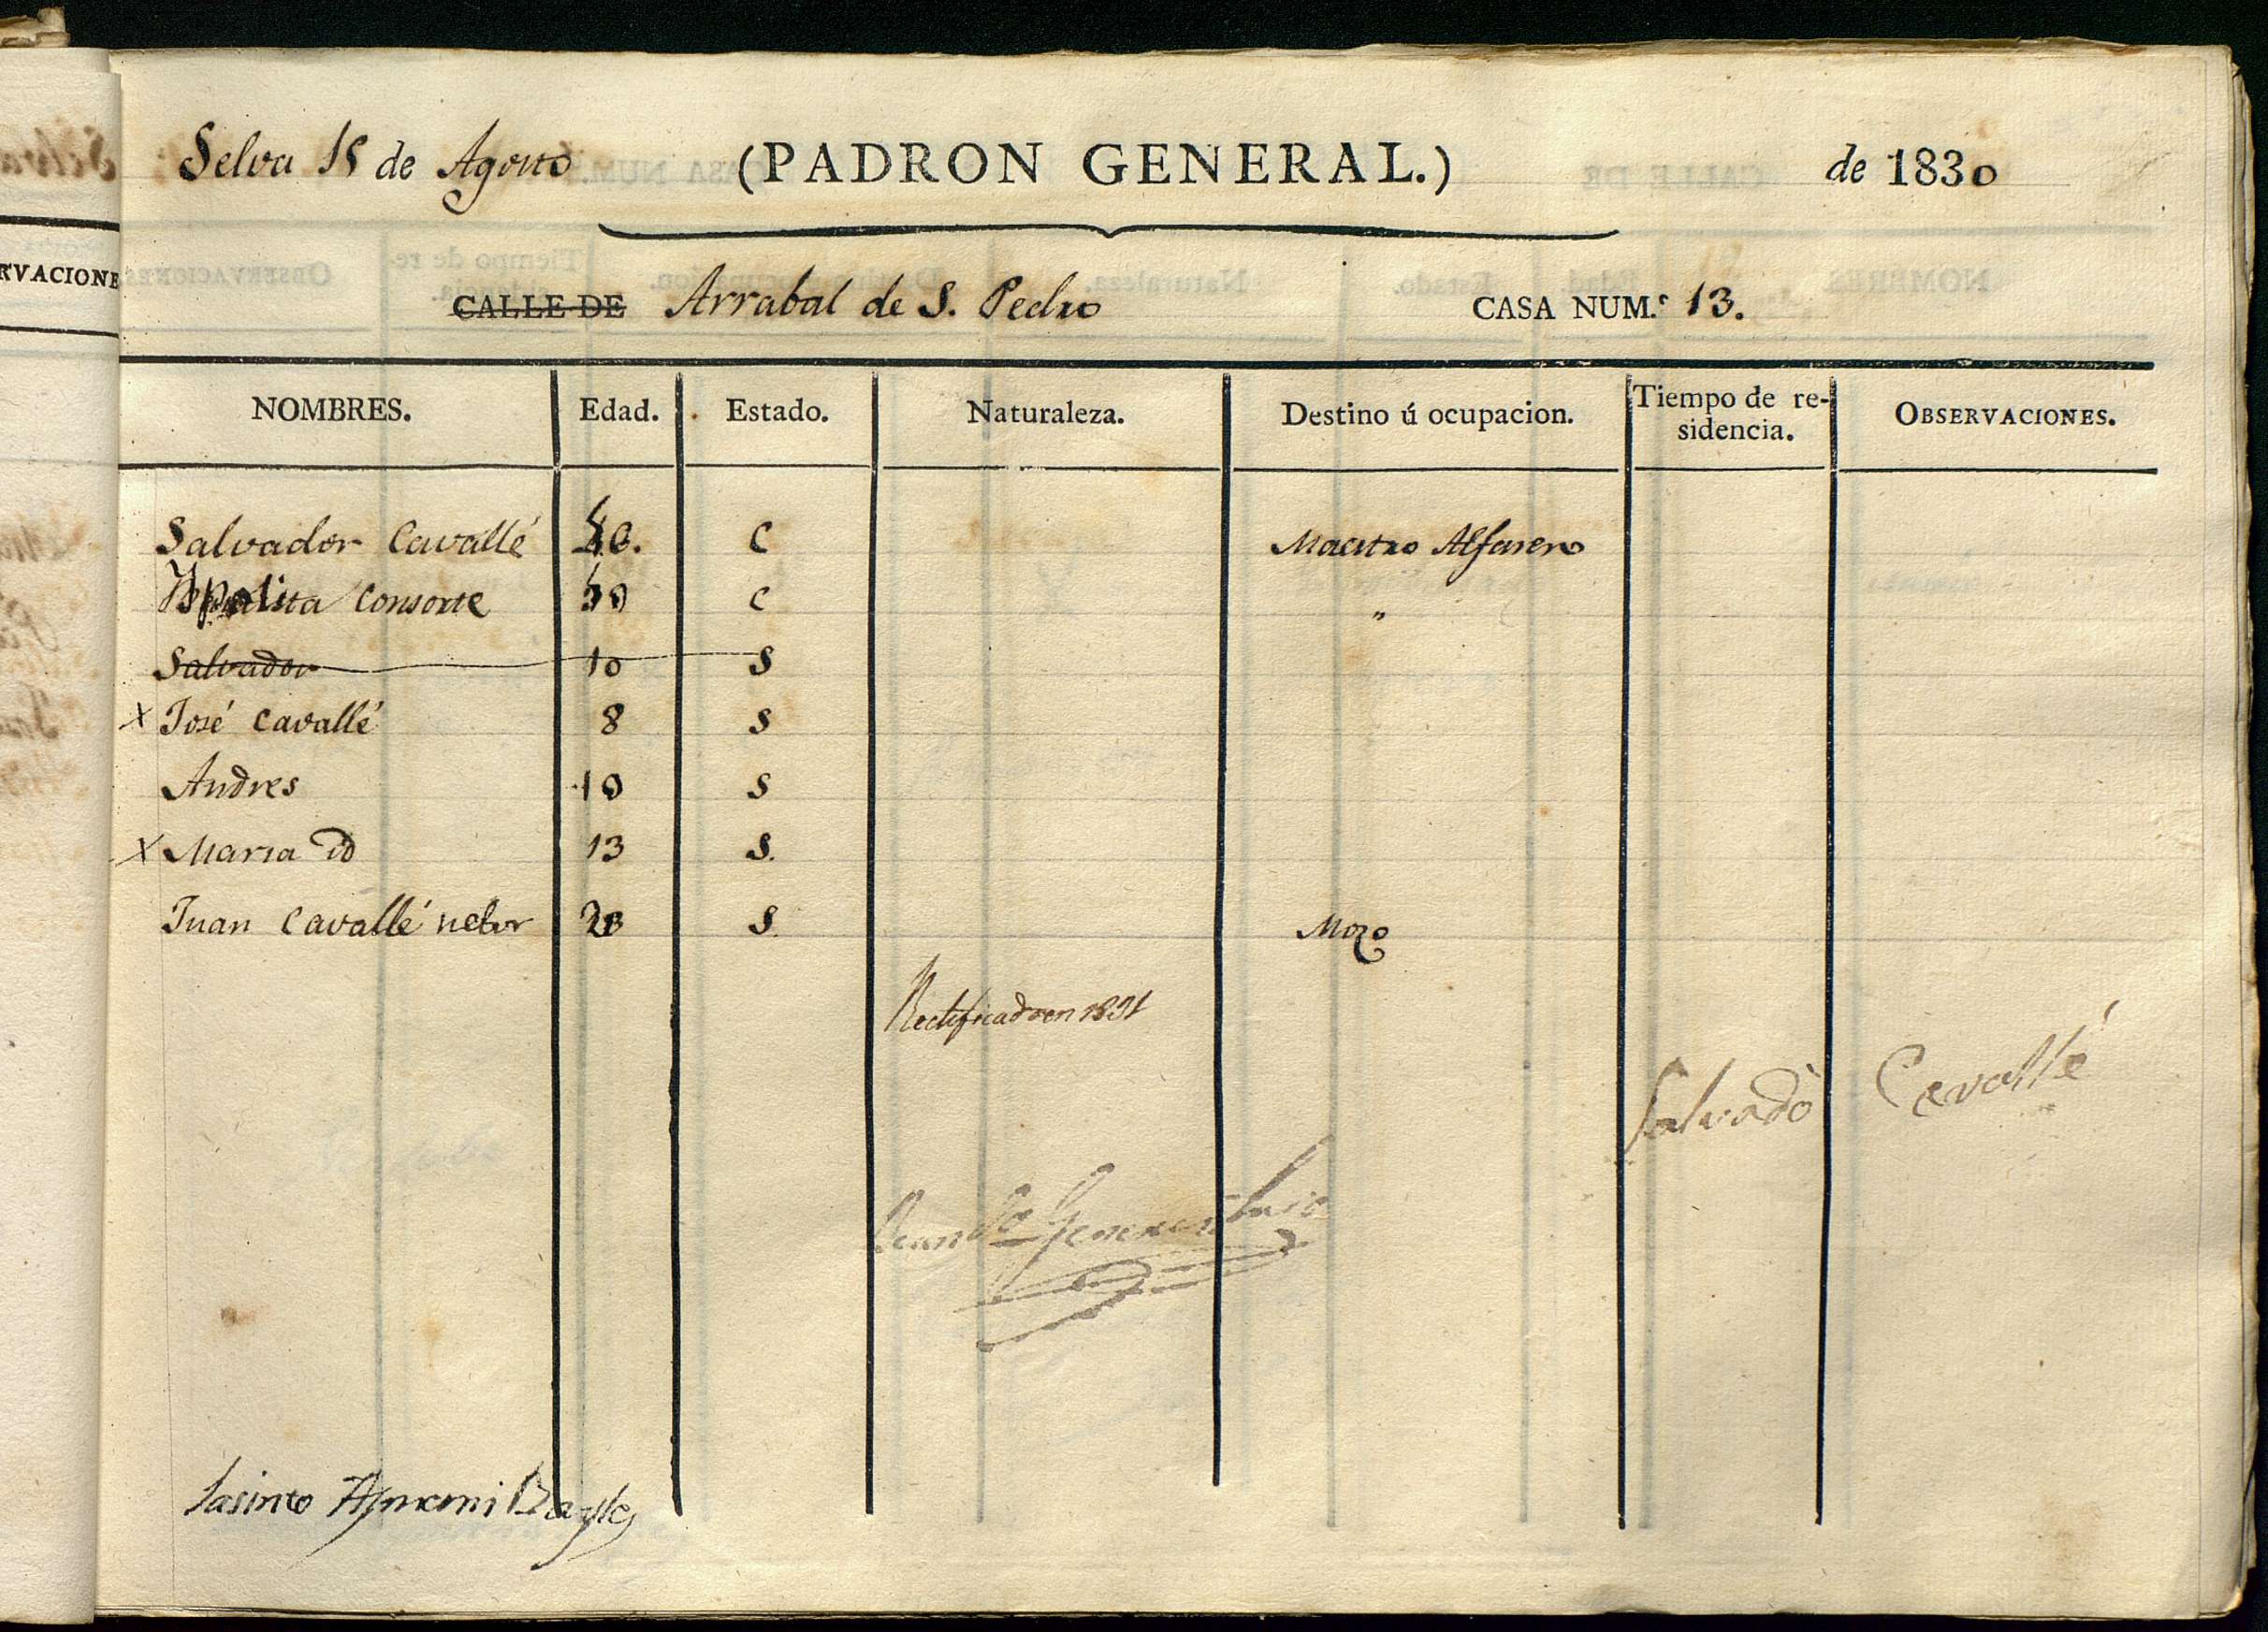 Selva 15 de Agosto (PADRON GENERAL.) de 1830
CALLE DE Arrabal de S. Pedro CASA NUM.º 13.
NOMBRES. Edad. Estado. Naturaleza. Destino ú ocupacion. Tiempo de re-sidencia. OBSERVACIONES.
RVACIONE
Salvador Cavallé C Maestro Alfarero
Ypolita Consorte C "
Salvador 10 S
x José Cavallé 8 S
Andres 10 S
x Maria id 13 S.
Juan Cavallé S. Mozo
Rectificado en 1831
Salvadò Cavallé
Jasinto Bayle